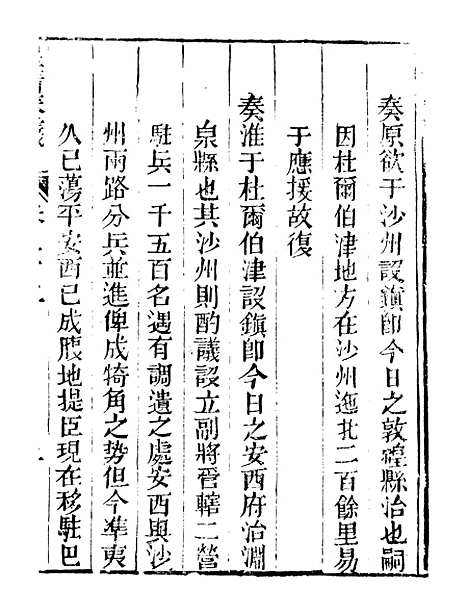 奏原欲于沙州設鎭卽今日之敦煌縣治也嗣
因杜爾伯津地方在沙州迤北二百餘里易
于應援故復
奏准于杜爾伯津設鎭卽今日之安西府治淵
泉縣也其沙州則酌議設立副將管轄二營
駐兵一千五百名遇有調遣之處安西與沙
州兩路分兵並進俾成犄角之势但今準夷
久已蕩平安西已成腹地提臣現在移駐巴